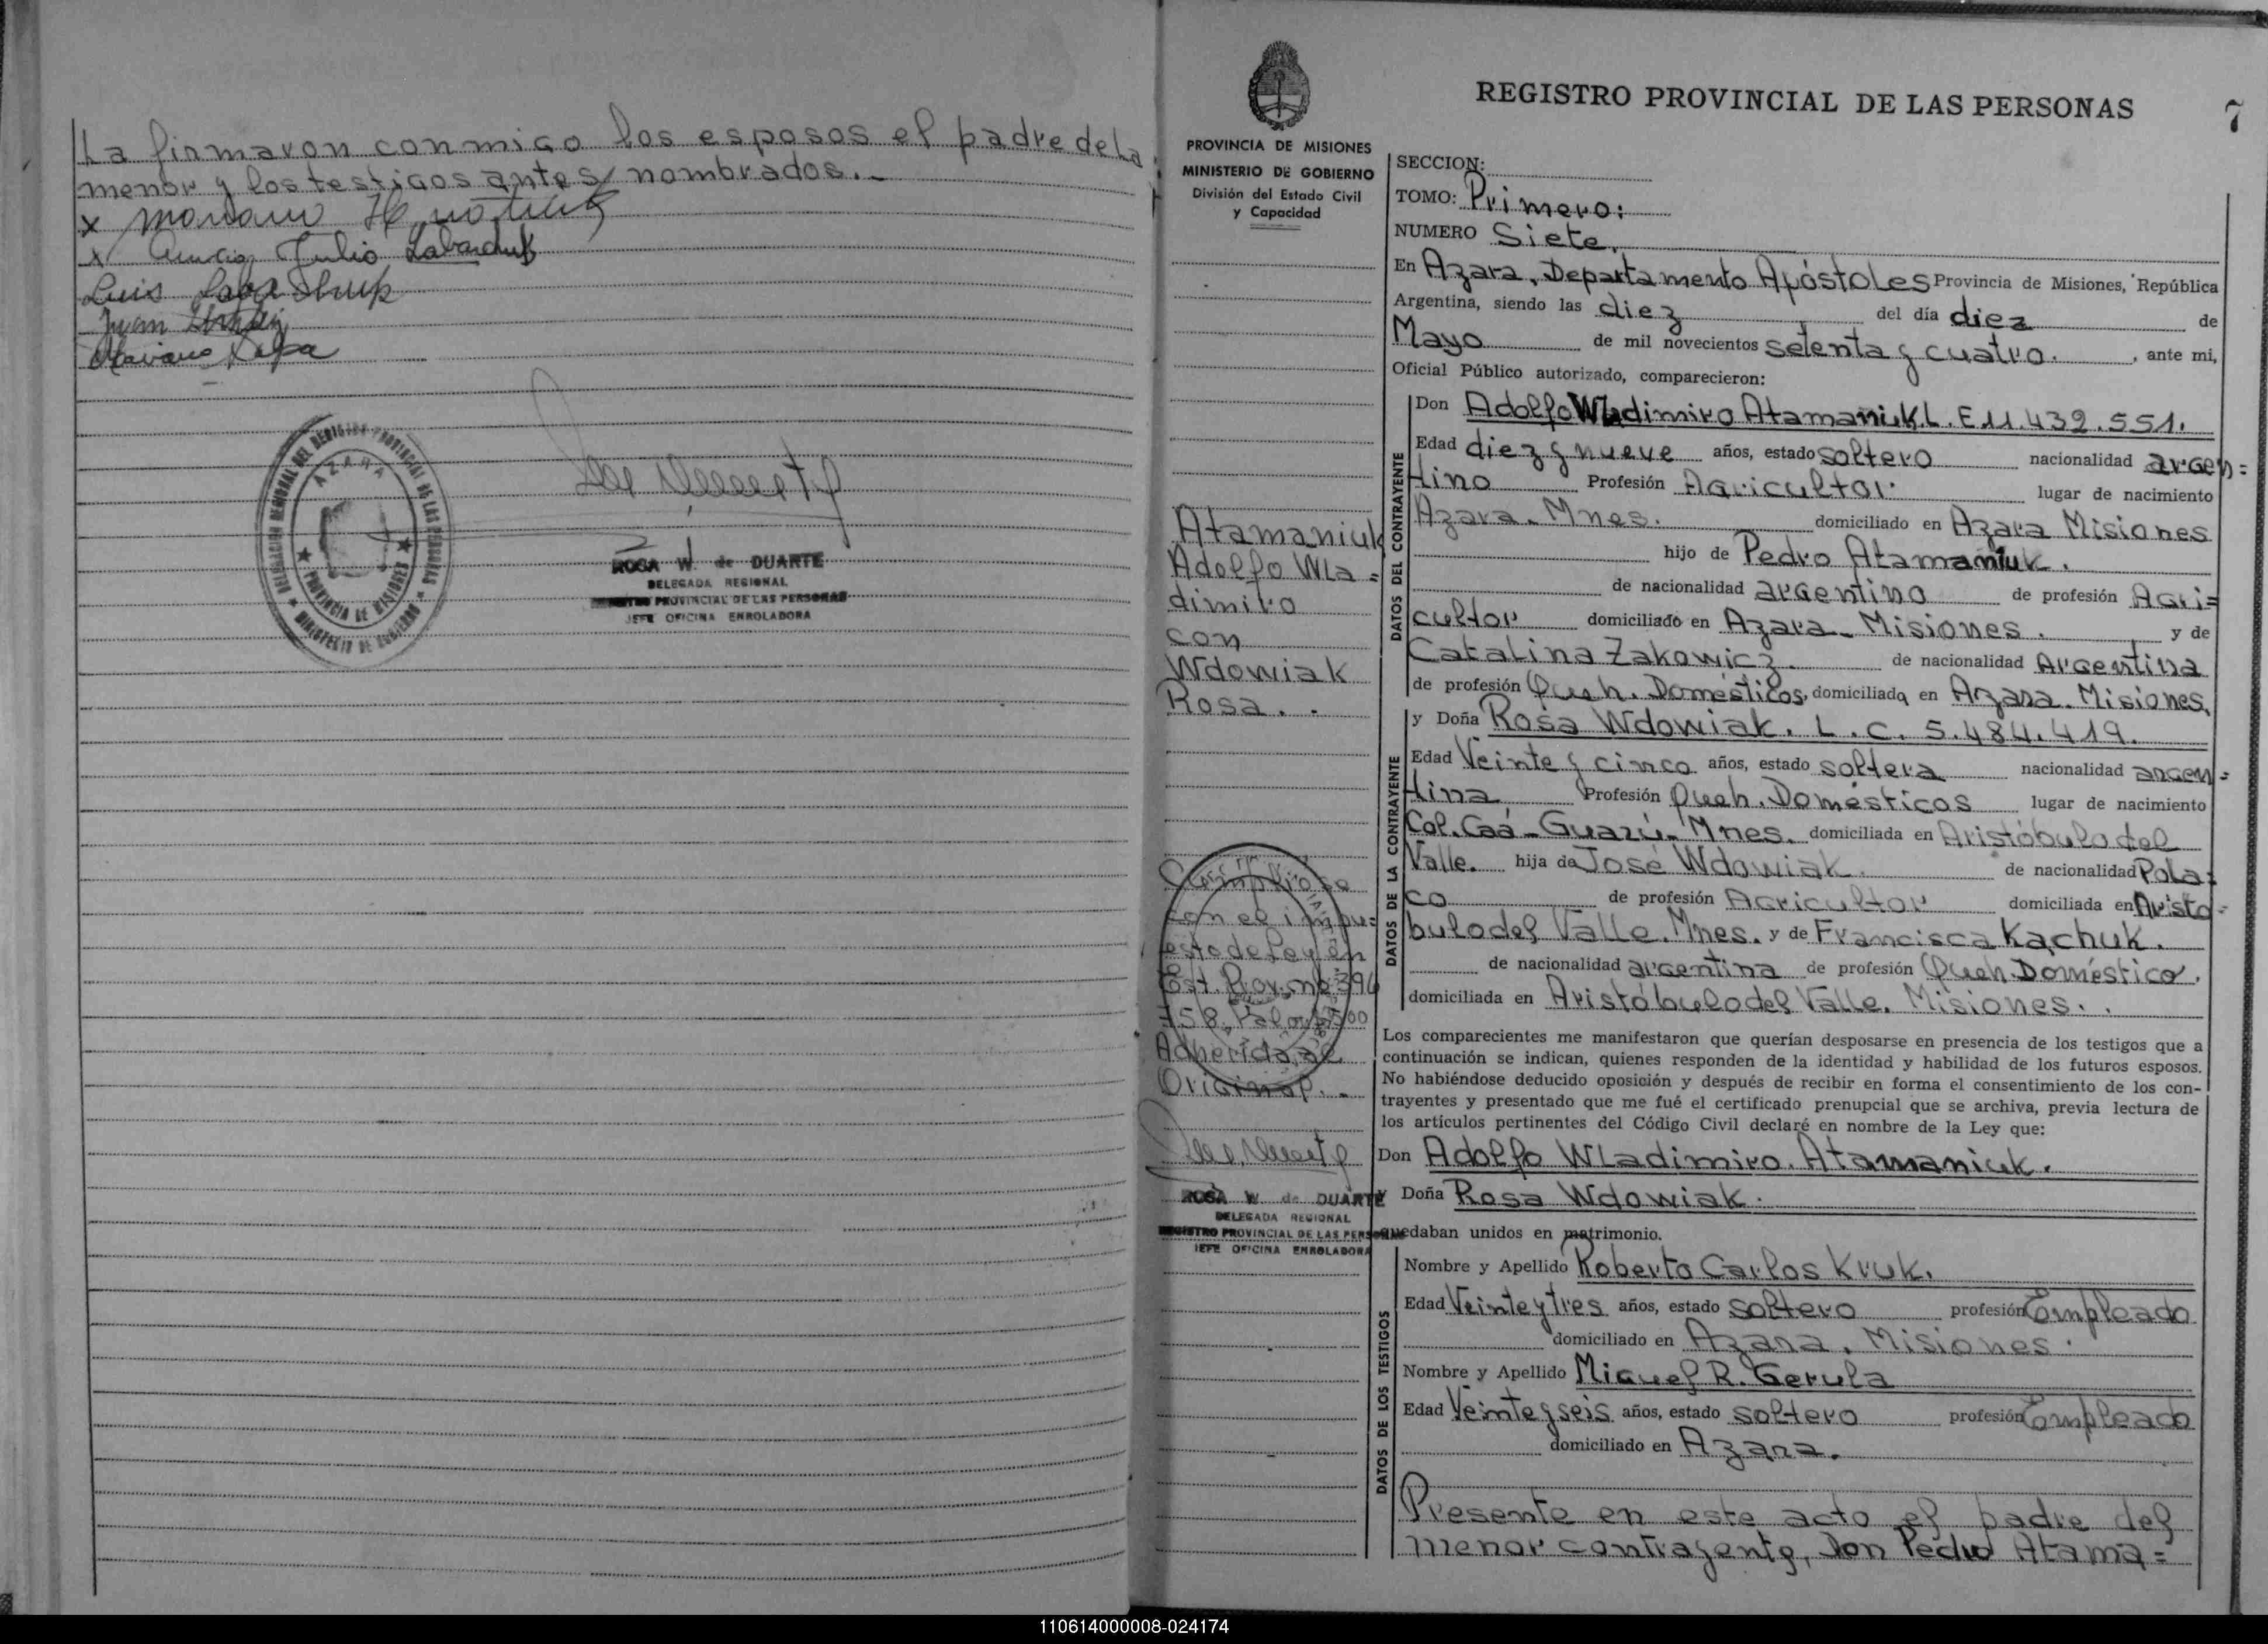 La firmaron conmigo los esposos el padre de la
menor y los testigos antes nombrados.-
x
x Julio Labarchuk
Luis
Juan
Mariano
DELEGACION REGIONAL DEL REGISTRO PROVINCIAL DE LAS PERSONAS
AZARA
PROVINCIA DE MISIONES
MINISTERIO DE GOBIERNO
ROSA W. de DUARTE
DELEGADA REGIONAL
REGISTRO PROVINCIAL DE LAS PERSONAS
JEFE OFICINA ENROLADORA
PROVINCIA DE MISIONES
MINISTERIO DE GOBIERNO
División del Estado Civil
y Capacidad
Atamaniuk
Adolfo Wla=
dimiro
con
Wdowiak
Rosa. .
Cumplióse
con el impu=
esto de Ley en
Est. Prov. nº 396
758. Valor
Adherida al
Original. -
ROSA W. de DUARTE
DELEGADA REGIONAL
REGISTRO PROVINCIAL DE LAS PERSONAS
JEFE OFICINA ENROLADORA
REGISTRO PROVINCIAL DE LAS PERSONAS 7
SECCION:
TOMO: Primero:
NUMERO Siete.
En Azara, Departamento Apóstoles Provincia de Misiones, República
Argentina, siendo las diez del día diez de
Mayo de mil novecientos setenta y cuatro. , ante mi,
Oficial Público autorizado, comparecieron:
DATOS DEL CONTRAYENTE
Don Adolfo Wladimiro Atamaniuk. L. E 11.432.551.
Edad diez y nueve años, estado soltero nacionalidad argen=
tino Profesión Agricultor lugar de nacimiento
Azara. Mnes. domiciliado en Azara Misiones
hijo de Pedro Atamaniuk.
de nacionalidad argentino de profesión Agri=
cultor domiciliado en Azara- Misiones. y de
Catalina Zakowicz. de nacionalidad Argentina
de profesión Queh. Domésticos, domiciliada en Azara. Misiones.
DATOS DE LA CONTRAYENTE
y Doña Rosa Wdowiak. L. C. 5.484.419.
Edad Veinte y cinco años, estado soltera nacionalidad argen=
tina Profesión Queh. Domésticos lugar de nacimiento
Col. Caá-Guazú- Mnes. domiciliada en Aristóbulo del
Valle. hija de José Wdowiak. de nacionalidad Pola=
co de profesión Agricultor domiciliada en Aristo=
bulo del Valle. Mnes. y de Francisca Kachuk.
de nacionalidad argentina de profesión Queh. Doméstico.
domiciliada en Aristóbulo del Valle. Misiones. .
Los comparecientes me manifestaron que querían desposarse en presencia de los testigos que a
continuación se indican, quienes responden de la identidad y habilidad de los futuros esposos.
No habiéndose deducido oposición y después de recibir en forma el consentimiento de los con-
trayentes y presentado que me fué el certificado prenupcial que se archiva, previa lectura de
los artículos pertinentes del Código Civil declaré en nombre de la Ley que:
Don Adolfo Wladimiro. Atamaniuk.
y Doña Rosa Wdowiak.
quedaban unidos en matrimonio.
DATOS DE LOS TESTIGOS
Nombre y Apellido Roberto Carlos Kruk.
Edad Veinte y tres años, estado soltero profesión Empleado
domiciliado en Azara. Misiones.
Nombre y Apellido Miguel R. Gerula
Edad Veinte y seis años, estado soltero profesión Empleado
domiciliado en Azara.
Presente en este acto el padre del
menor contrayente, Don Pedro Atama=
110614000008-024174